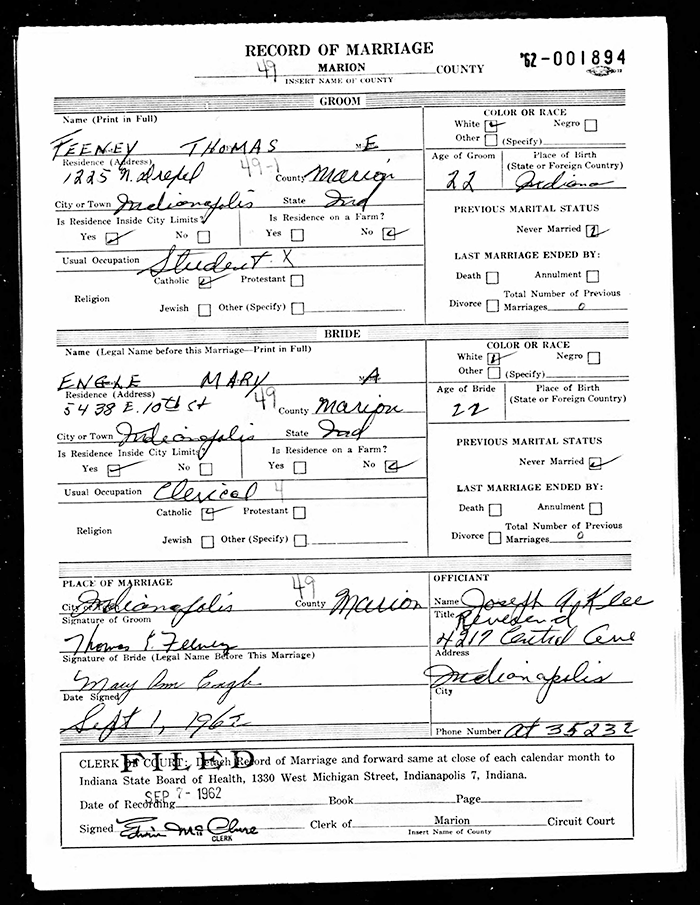 RECORD OF MARRIAGE
49 MARION COUNTY '62-001894
INSERT NAME OF COUNTY
GROOM
Name (Print in Full)
FEENEY THOMAS M E
Residence (Address)
1225 N. Drexel 49-1 County Marion
City or Town Indianapolis State Ind
Is Residence Inside City Limits? Is Residence on a Farm?
Yes No Yes No
Usual Occupation Student X
Religion
Catholic Protestant
Jewish Other (Specify)
COLOR OR RACE
White Negro
Other (Specify)
Age of Groom Place of Birth
(State or Foreign Country)
22 Indiana
PREVIOUS MARITAL STATUS
Never Married
LAST MARRIAGE ENDED BY:
Death Annulment
Divorce Total Number of Previous
Marriages 0
BRIDE
Name (Legal Name before this Marriage—Print in Full)
ENGLE MARY M A
Residence (Address)
5438 E. 10th St 49 County Marion
City or Town Indianapolis State Ind
Is Residence Inside City Limits? Is Residence on a Farm?
Yes No Yes No
Usual Occupation Clerical 4
Religion
Catholic Protestant
Jewish Other (Specify)
COLOR OR RACE
White Negro
Other (Specify)
Age of Bride Place of Birth
(State or Foreign Country)
22
PREVIOUS MARITAL STATUS
Never Married
LAST MARRIAGE ENDED BY:
Death Annulment
Divorce Total Number of Previous
Marriages 0
PLACE OF MARRIAGE 49
City Indianapolis County Marion
Signature of Groom
Thomas E. Feeney
Signature of Bride (Legal Name Before This Marriage)
Mary Ann Engle
Date Signed
Sept 1, 1962
OFFICIANT
Name Joseph A. Klee
Title Reverend
4217 Central Ave
Address
Indianapolis
City
Phone Number At 35232
FILED
CLERK OF COURT: Detach Record of Marriage and forward same at close of each calendar month to
Indiana State Board of Health, 1330 West Michigan Street, Indianapolis 7, Indiana.
Date of Recording SEP 7- 1962 Book Page
Signed Edwin McClure Clerk of Marion Circuit Court
CLERK Insert Name of County